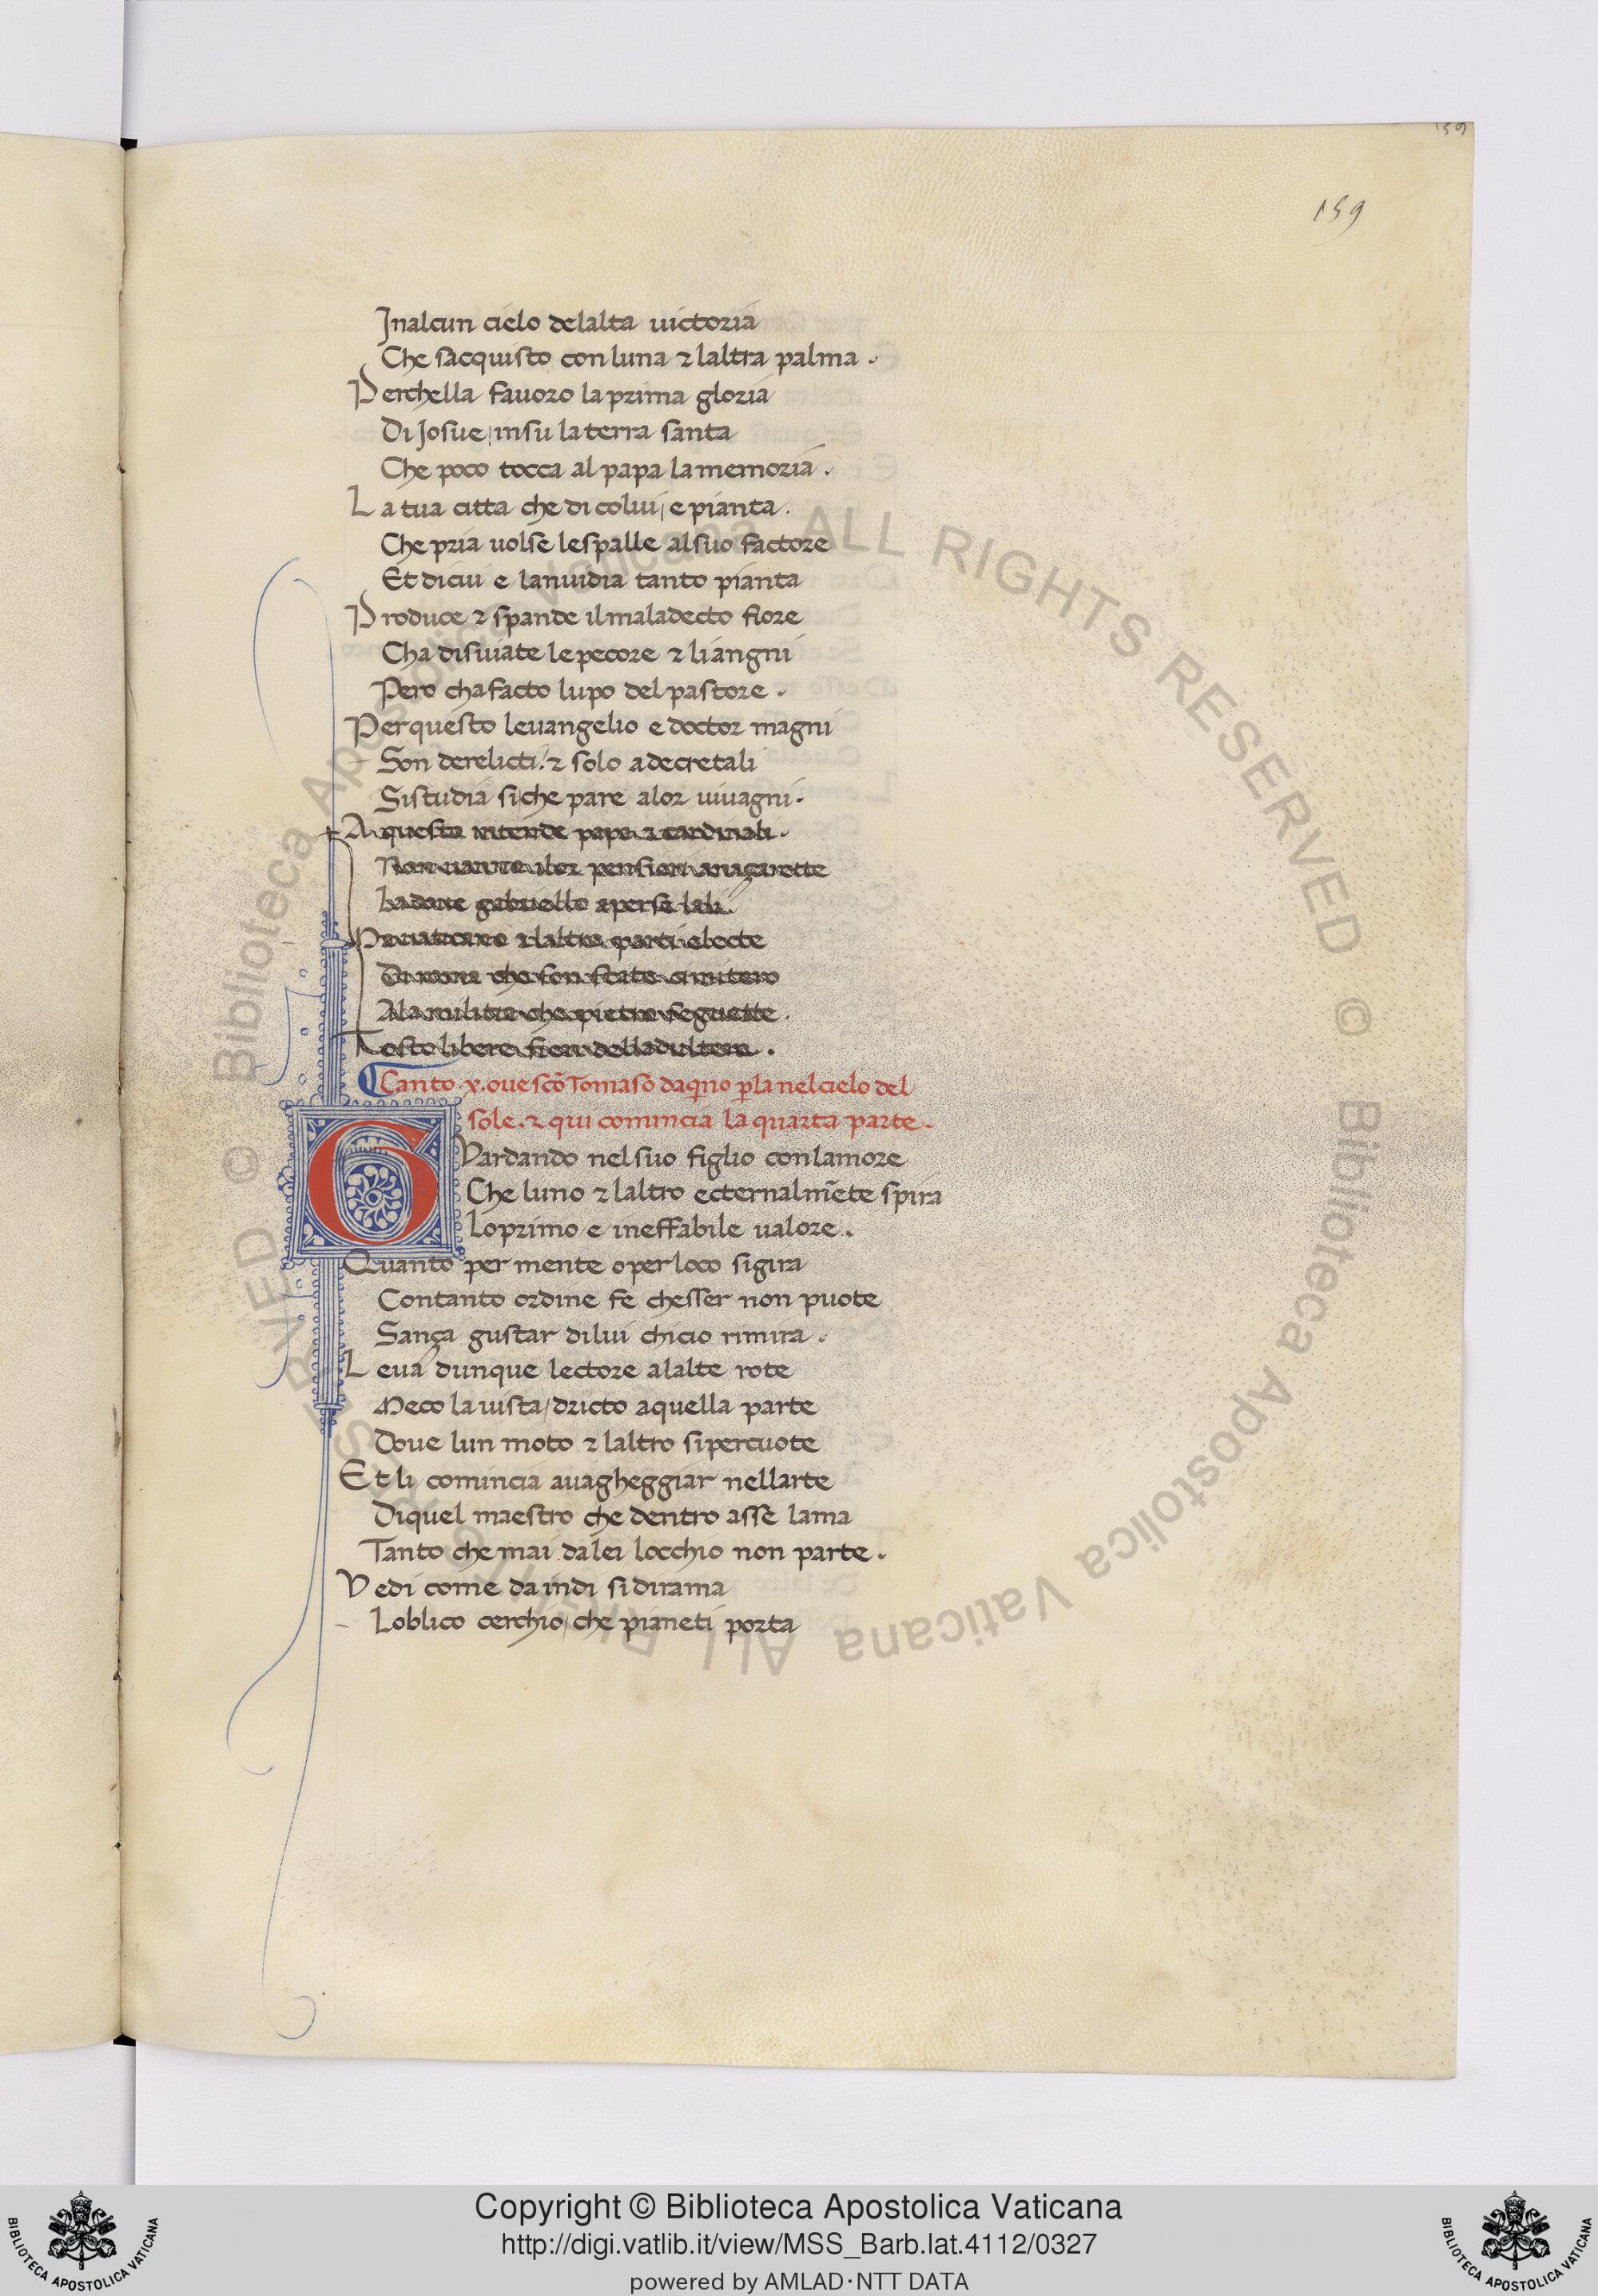 159
159
Inalcun cielo delalta uictoria
Che sacquisto con luna & laltra palma .
Perchella fauoro la prima gloria
Di Josue / insu la terra santa
Che poco tocca al papa la memoria .
La tua citta che di colui / e pianta .
Che pria uolse le spalle al suo factore
Et di cui e lanuidia tanto pianta
Produce & spande il maladecto fiore
Cha disuiate le pecore & li angni
Pero cha facto lupo del pastore .
Per questo leuangelio e doctor magni
Son derelicti / & solo a decretali
Si studia si che pare a lor uiuagni .
A questo intende papa & cardinali .
Non uanno i lor pensieri a naçarette
La doue gabriello aperse lali .
Ma uaticano & laltre parti electe
Di roma che son state cimitero
A la militia che pietro seguette .
Tosto libere fien delladultero .
Canto .x. oue sco Tomaso daqno pla nel cielo del
sole . & qui comincia la quarta parte .
GVardando nel suo figlio con lamore
Che luno & laltro ecternalmete spira
Lo primo e ineffabile ualore .
Quanto per mente o per loco si gira
Con tanto ordine fe chesser non puote
Sança gustar di lui chi cio rimira .
Leua dunque lectore a lalte rote
Meco la uista / dricto a quella parte
Doue lun moto & laltro si percuote
Et li comincia a uagheggiar nellarte
Di quel maestro che dentro asse lama
Tanto che mai da lei locchio non parte .
Vedi come da indi si dirama
Loblico cerchio / che pianeti porta
© Biblioteca Apostolica Vaticana ALL RIGHTS RESERVED © Biblioteca Apostolica Vaticana ALL RIGHTS RESERVED
Copyright © Biblioteca Apostolica Vaticana
http://digi.vatlib.it/view/MSS_Barb.lat.4112/0327
powered by AMLAD·NTT DATA
BIBLIOTECA APOSTOLICA VATICANA
BIBLIOTECA APOSTOLICA VATICANA